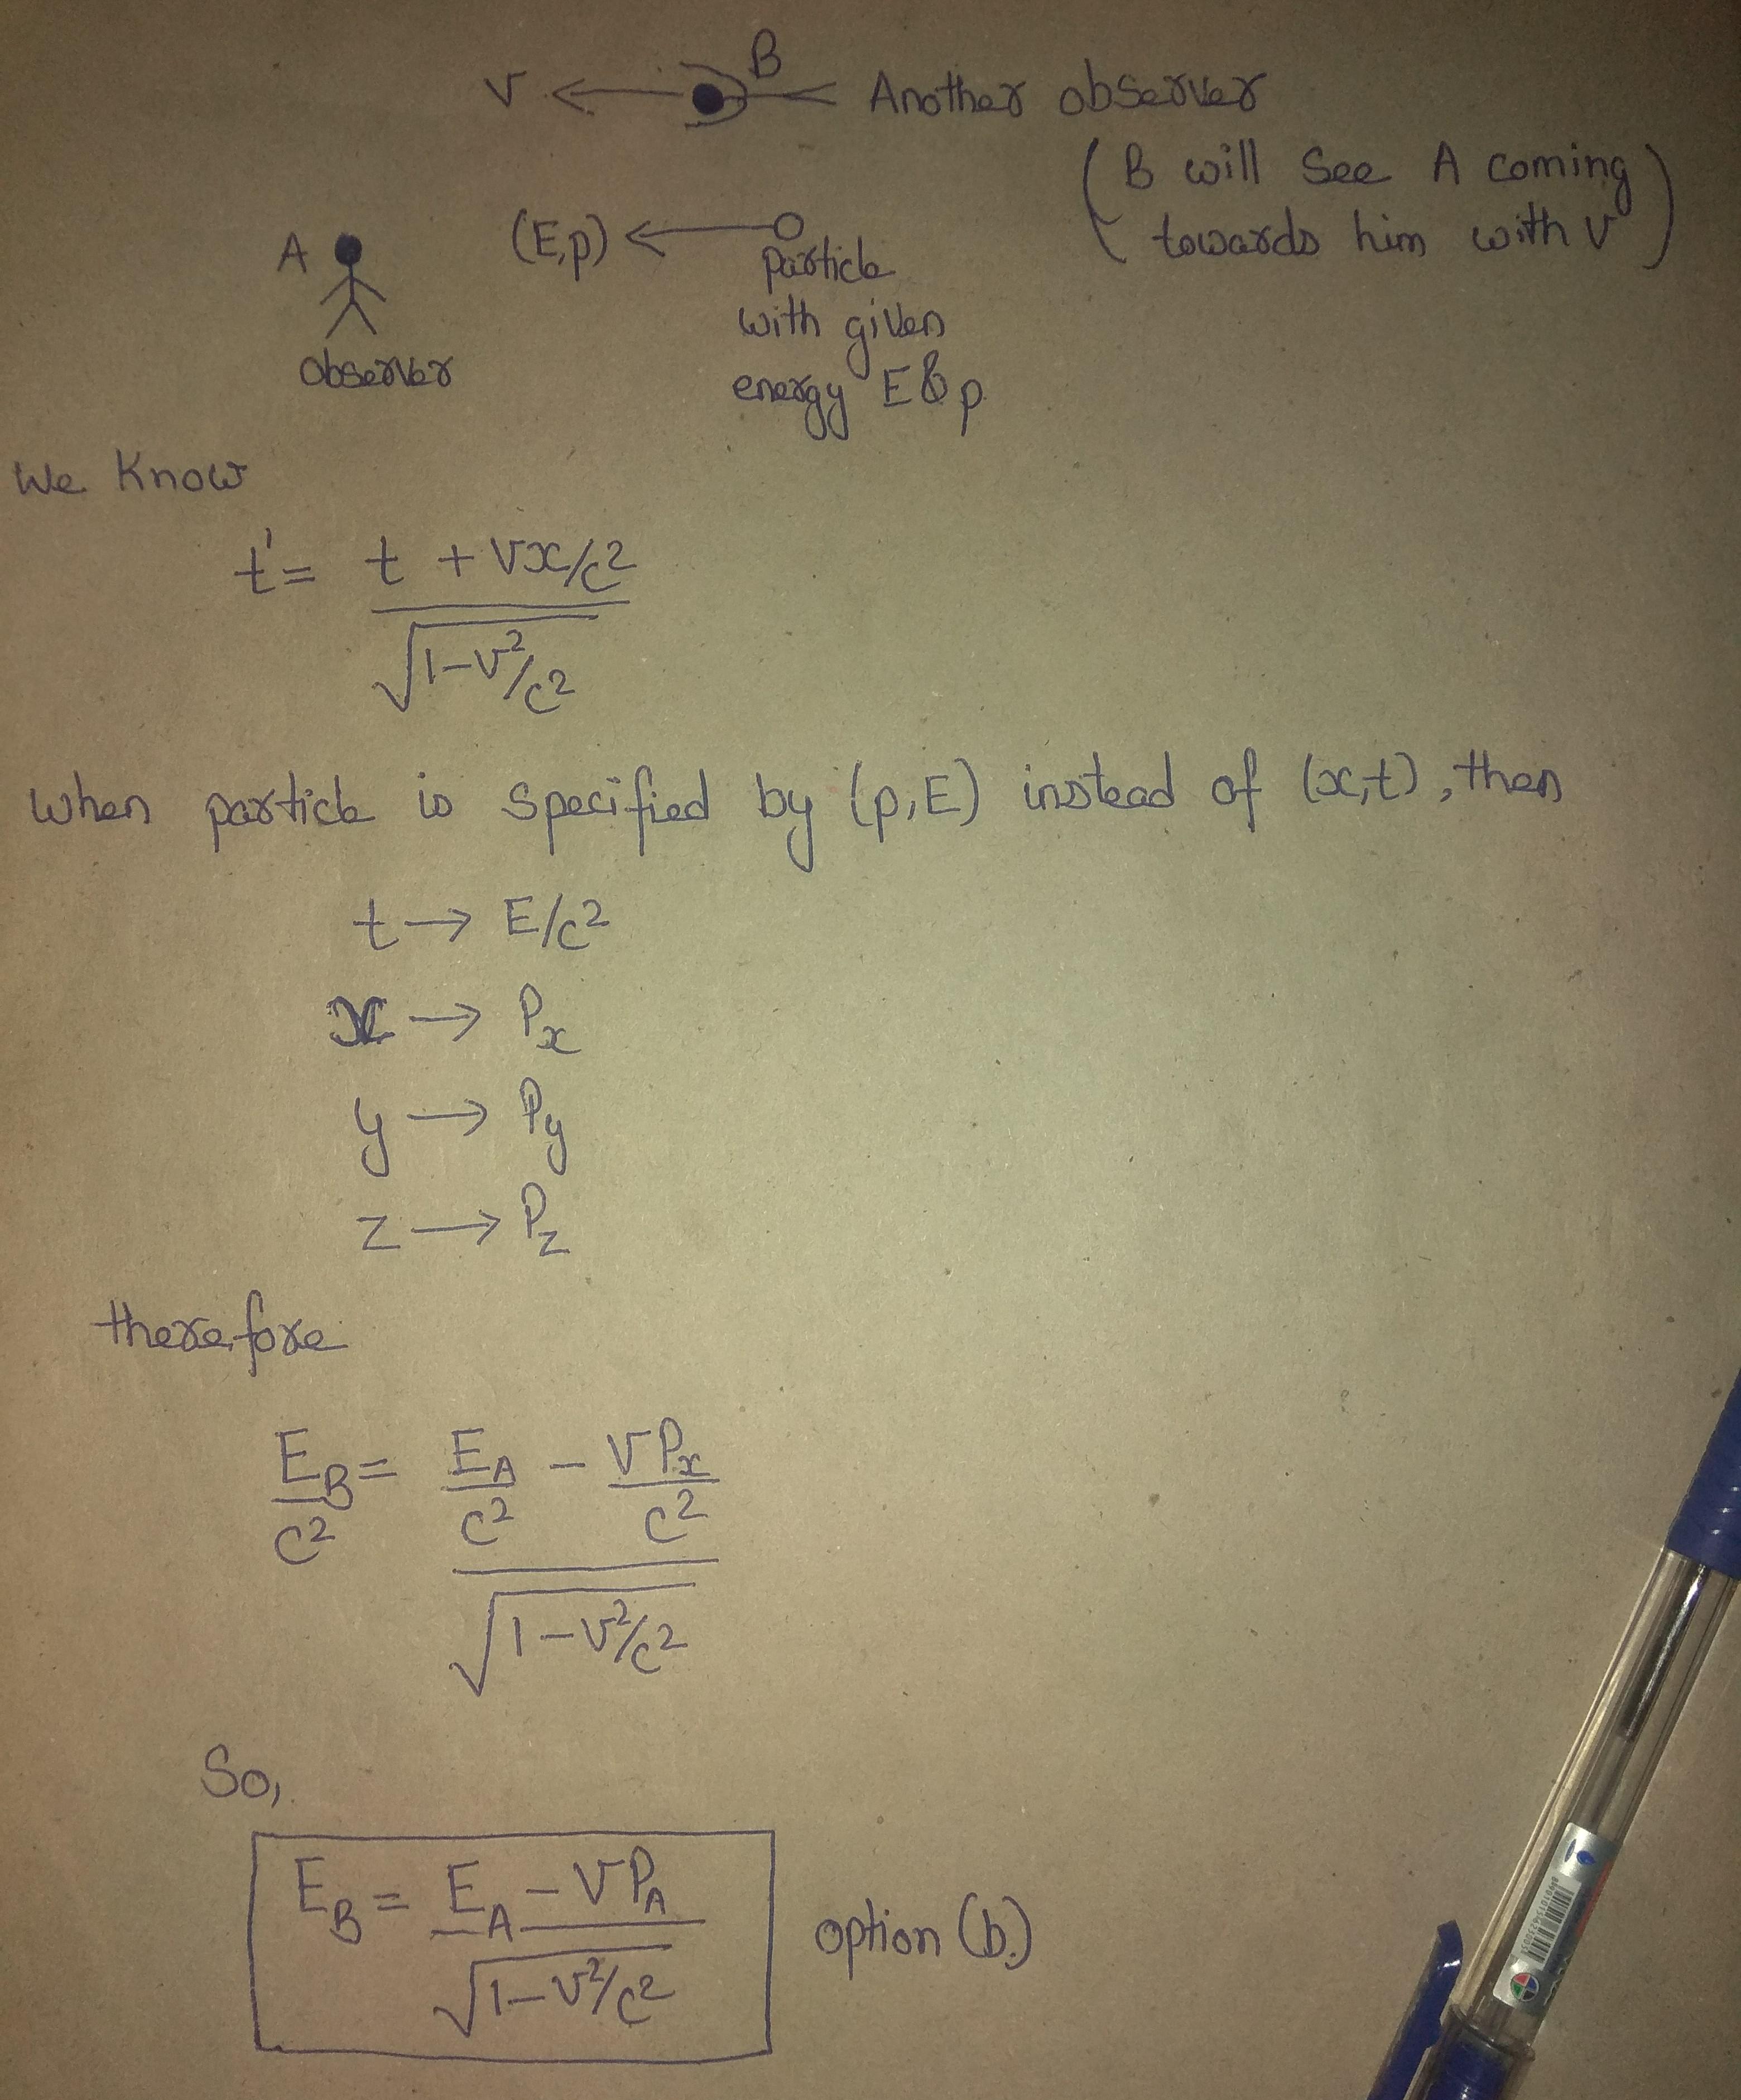 V ← B Another observer
(B will see A coming
towards him with v)
A (E,p) ← particle
with given
energy E & p
observer
We Know
t' = t + Vx/c²
√1-v²/c²
When particle is specified by (p,E) instead of (x,t), then
t → E/c²
x → Px
y → Py
z → Pz
therefore
E_B/c² = E_A/c² - VPx/c²
√1-v²/c²
So,
E_B = E_A - VP_A
√1-v²/c²
option (b.)